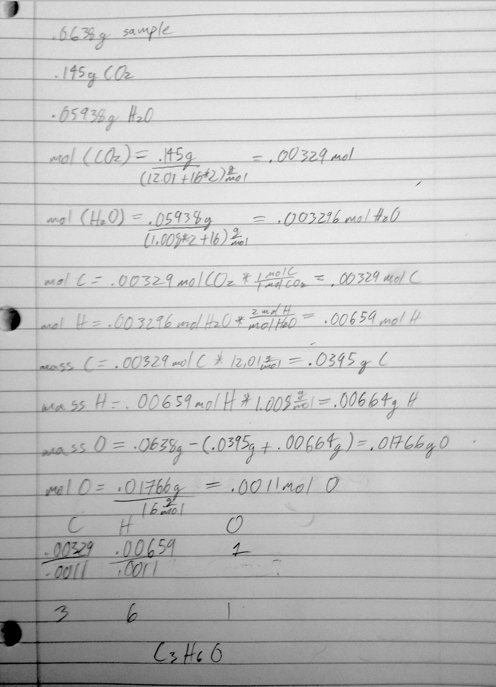 .0638g sample
.145g CO2
.05938g H2O
mol (CO2) = .145g / (12.01+16*2) g/mol = .00329 mol
mol (H2O) = .05938g / (1.008*2+16) g/mol = .003296 mol H2O
mol C = .00329 mol CO2 * 1 mol C / 1 mol CO2 = .00329 mol C
mol H = .003296 mol H2O * 2 mol H / mol H2O = .00659 mol H
mass C = .00329 mol C * 12.01 g/mol = .0395 g C
mass H = .00659 mol H * 1.008 g/mol = .00664 g H
mass O = .0638g - (.0395g + .00664g) = .01766g O
mol O = .01766g / 16 g/mol = .0011 mol O
C H O
.00329/.0011 .00659/.0011 1
3 6 1
C3H6O